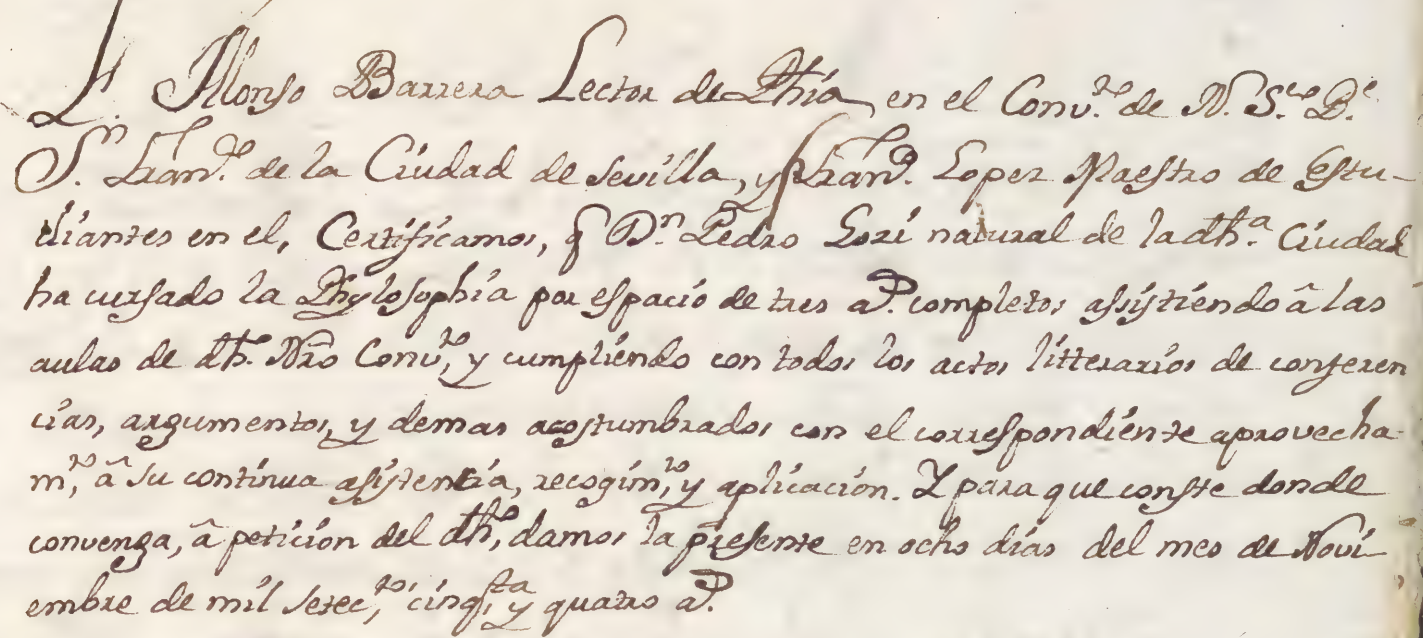 Fr. Alonso Barrera Lector de Phía, en el Conv.to de N. S.co P.e
S.n Fran.co de la Ciudad de Sevilla, y Fr. Fran.co Lopez Maestro de Estu-
diantes en el, Certificamos, q D.n Pedro Lozi natural de la dh.a Ciudad
ha cursado la Phylosophia por espacio de tres a.s completos assistiendo â las
aulas de dh.o Nro Conv.to, y cumpliendo con todos los actos litterarios de conferen
cias, argumentos, y demas acostumbrados con el correspondiente aprovecha-
m.to, â su continua asistencia, recogim.to, y aplicación. Y para que conste donde
convenga, â petición del dh.o, damos la presente en ocho días del mes de Novi-
embre de mil setec.tos, cinq.ta y quatro a.s